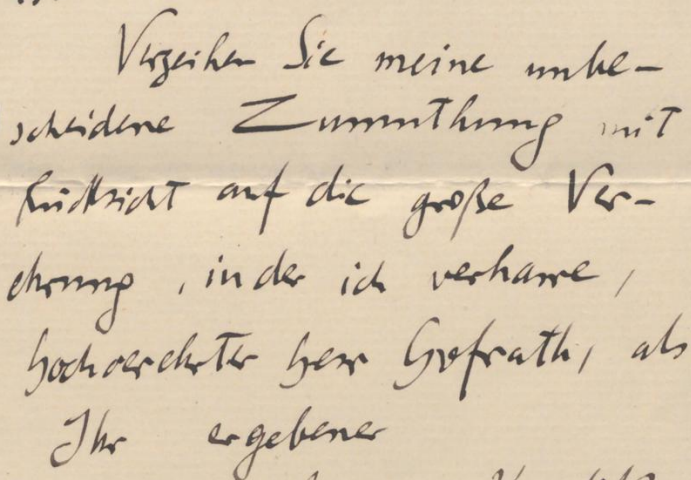 Verzeihen Sie meine unbe-
scheidene Zumuthung mit
Rücksicht auf die große Ver-
ehrung, in der ich verharre,
hochverehrter Herr Hofrath, als
Ihr ergebener